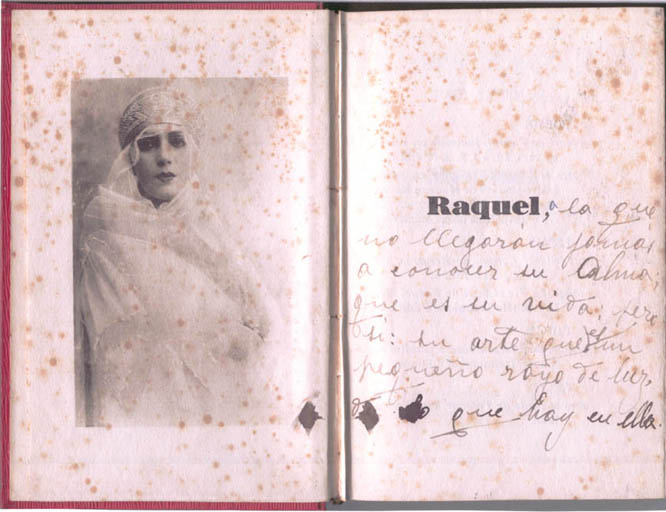 Raquel, a la que
no llegarán jamas
a conocer su alma,
que es su vida; pero
si: su arte que es un
pequeño rayo de luz,
lo que hay en ella.